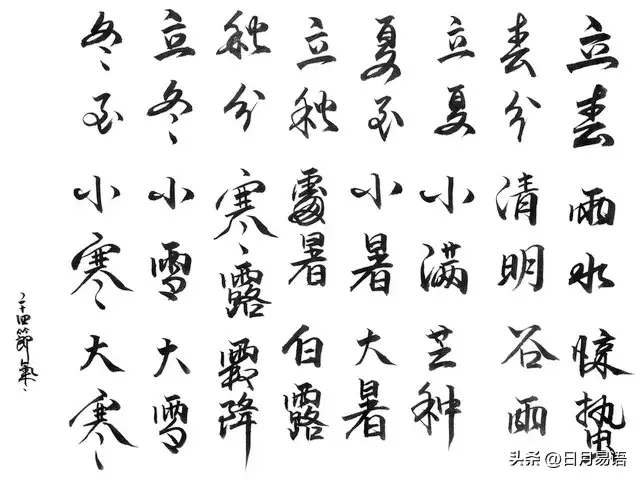 立春 雨水 惊蛰
春分 清明 谷雨
立夏 小满 芒种
夏至 小暑 大暑
立秋 處暑 白露
秋分 寒露 霜降
立冬 小雪 大雪
冬至 小寒 大寒
二十四節氣
头条 @日月易语